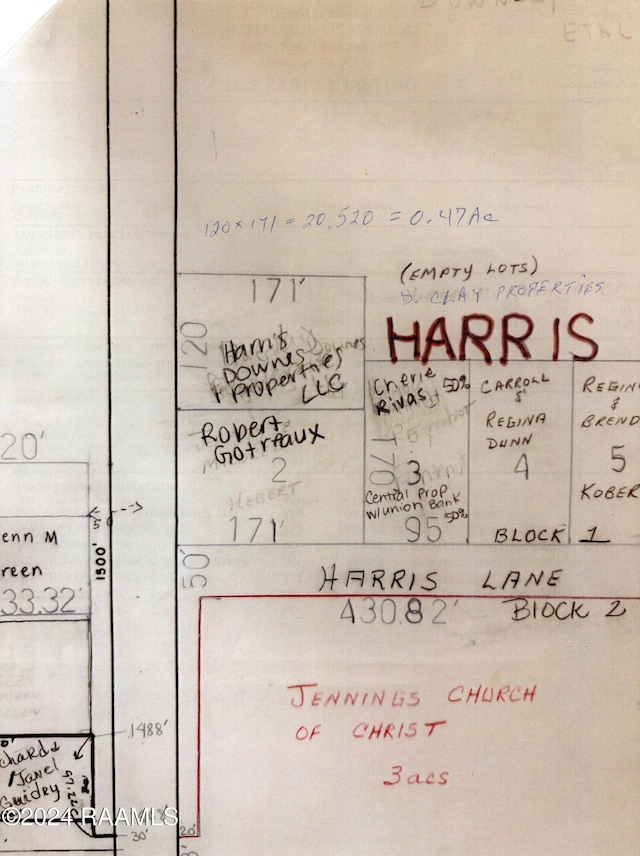 ETAL
120 x 171 = 20,520 = 0.47Ac
(EMPTY LOTS)
D. CLAY PROPERTIES
HARRIS
171'
120
Harris
Downes
Properties
LLC
Cherie 50%
Rivas
170
3
Central Prop
w/union Bank
50%
95
CARROLL
&
REGINA
DUNN
4
REGIN
&
BREND
5
KOBER
BLOCK 1
Robert
Gotreaux
2
HEBERT
171'
20'
50
enn M
reen
33.32'
1500'
50'
HARRIS LANE
430.82'
BLOCK 2
JENNINGS CHURCH
OF CHRIST
3acs
1488'
chard &
Janel
Guidry
30'
20'
©2024 RAAMLS